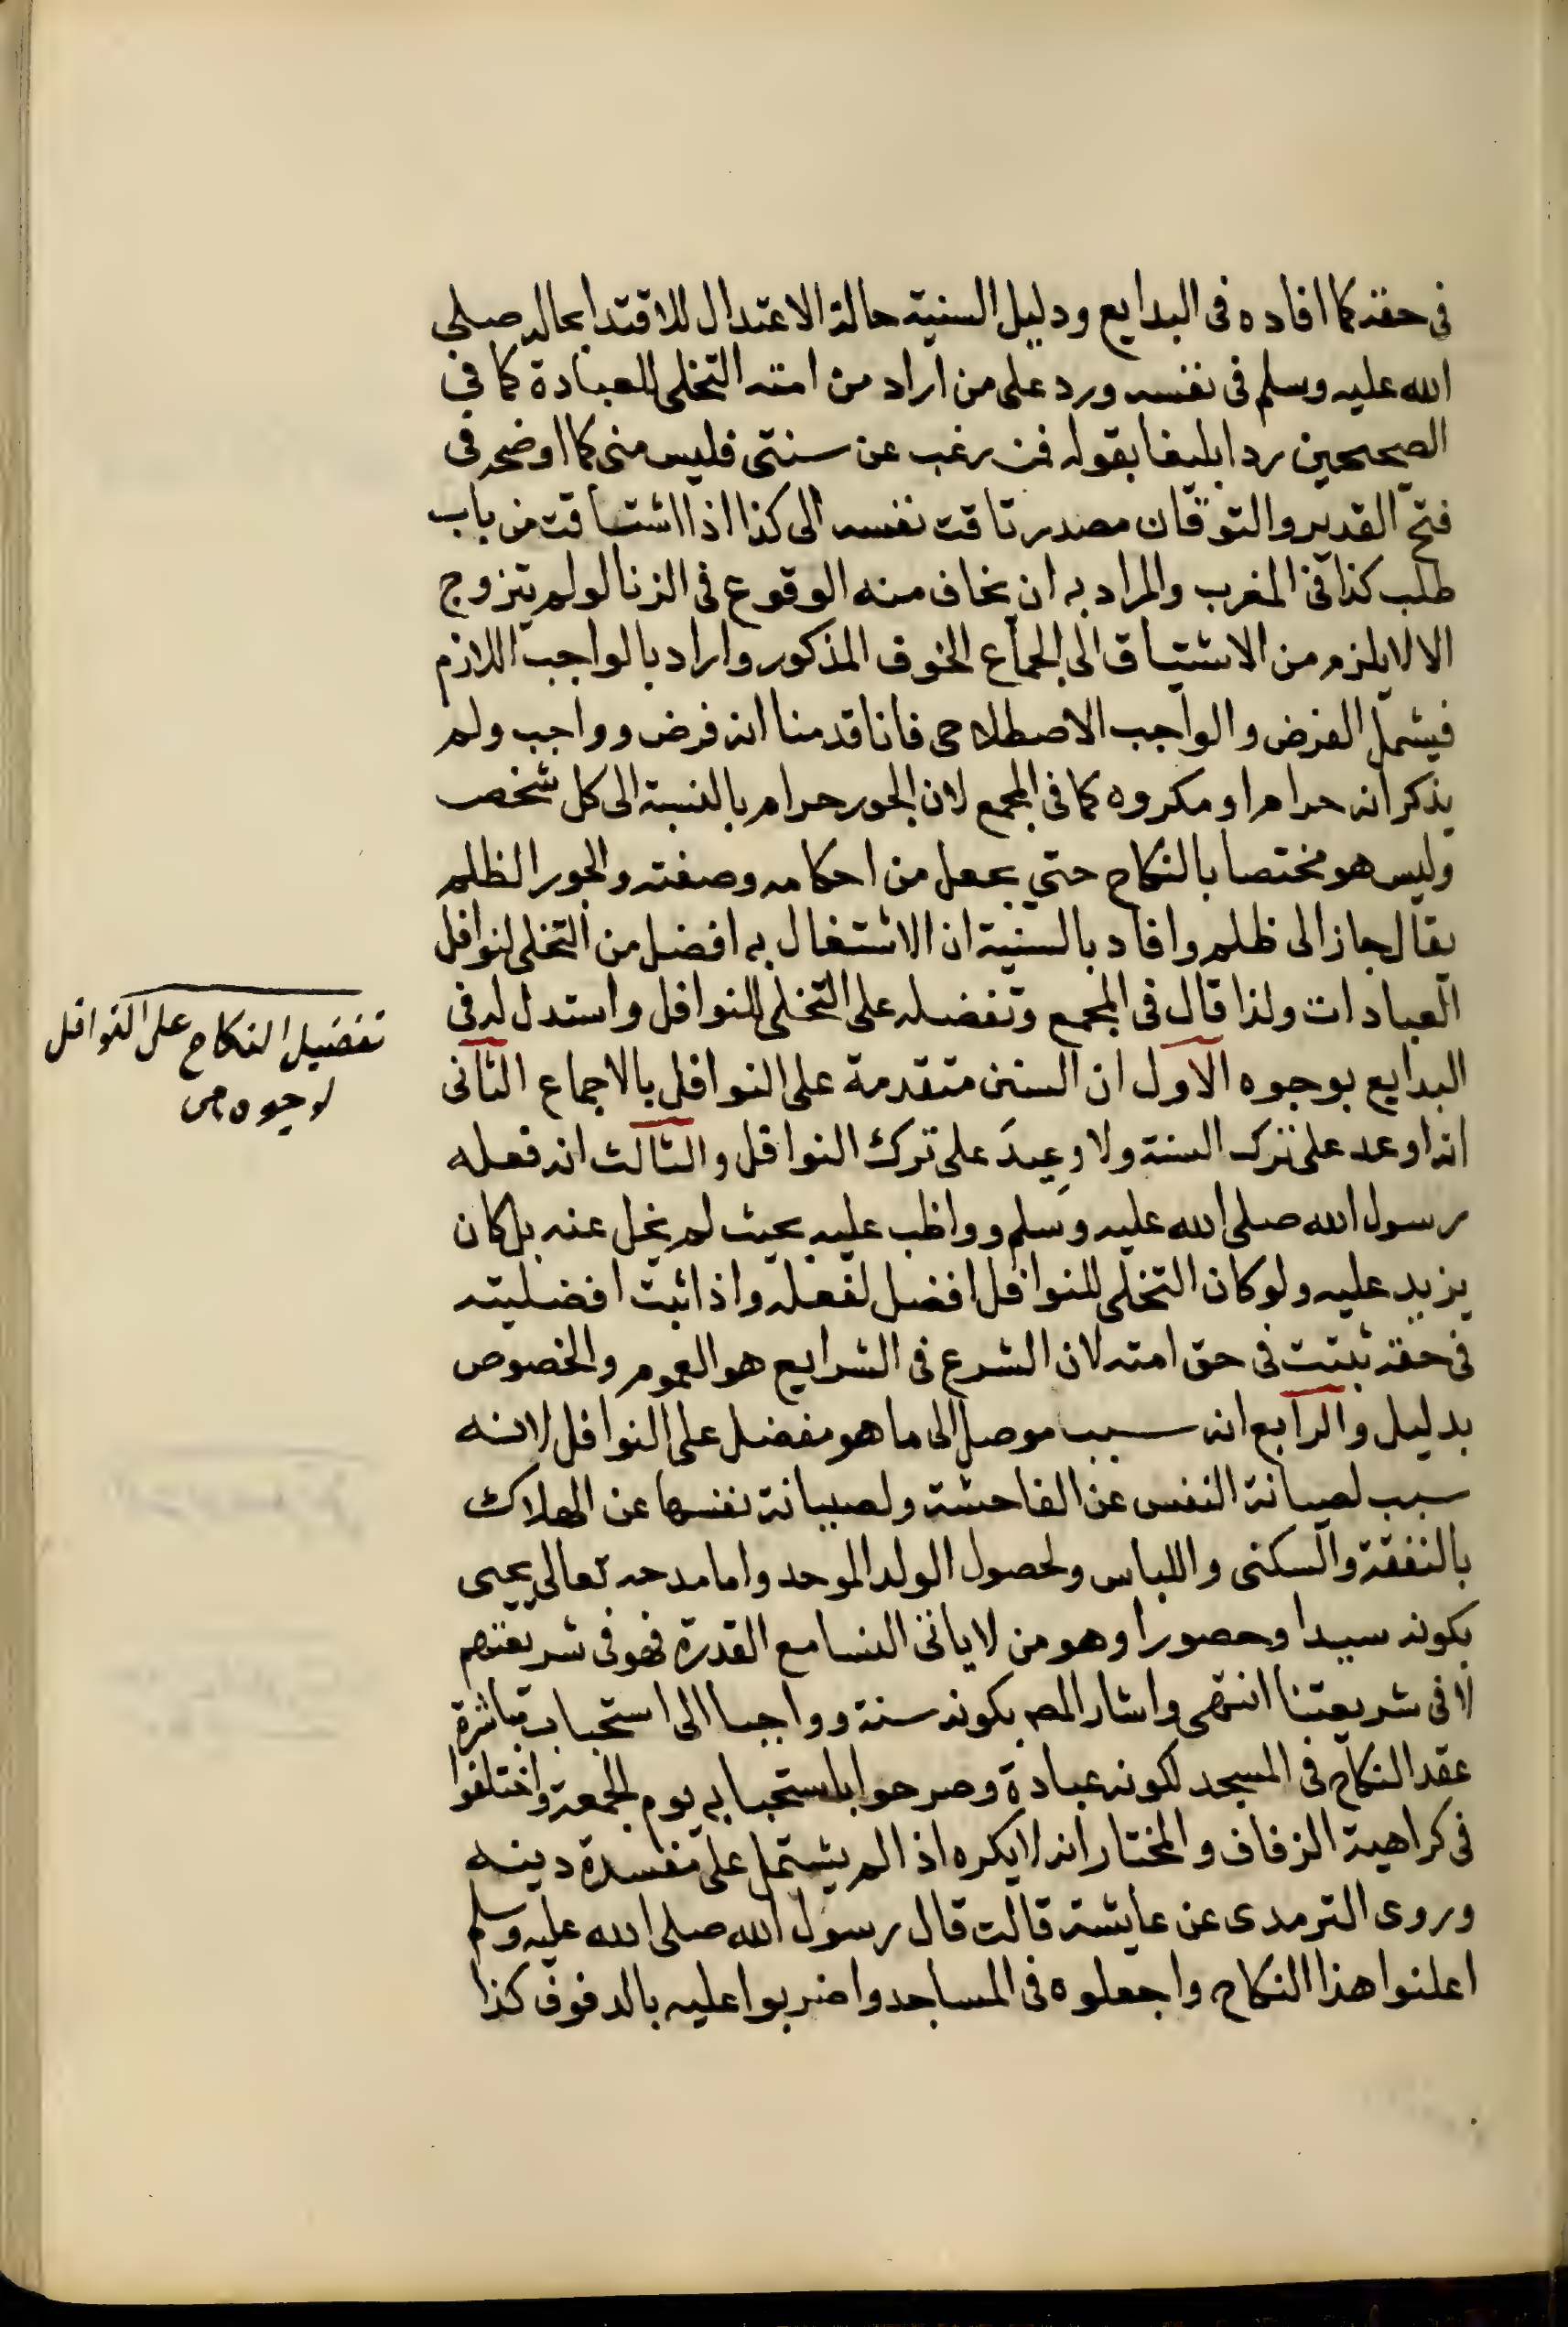 فى حقه كما افاده فى البدايع ودليل السنية حالة الاعتدال للاقتدا بحاله صلى
الله عليه وسلم فى نفسه ورد على من اراد من امته التخلى للعبادة كما في
الصحيحين ردا بليغا بقوله فمن رغب عن سنتى فليس منى كما اوضحه فى
فتح القدير والتوقان مصدر تاقت نفسه الى كذا اذا اشتاقت من باب
طلب كذا فى المغرب والمراد به ان يخاف منه الوقوع فى الزنا لو لم يتزوج
الا لا يلزم من الاشتياق الى الجماع الخوف المذكور واراد بالواجب اللازم
فيشمل الفرض والواجب الاصطلاحى فانا قدمنا انه فرض وواجب ولم
يذكر انه حرام او مكروه كما فى المجمع لان الجور حرام بالنسبة الى كل شخص
وليس هو مختصا بالنكاح حتي يجعل من احكامه وصفته والجور الظلم
يقال جاز الى ظلم وافاد بالسنية ان الاشتغال به افضل من التخلى لنوافل
العبادات ولذا قال فى المجمع وتفضله على التخلى للنوافل واستدل له فى
البدايع بوجوه الاول ان السنن متقدمة على النوافل بالاجماع الثانى
انه اوعد على ترك السنة ولا وعيد على ترك النوافل والثالث انه فعله
رسول الله صلى الله عليه وسلم وواظب عليه بحيث لم يخل عنه بل كان
يزيد عليه ولو كان التخلى للنوافل افضل لفعله واذا ثبت افضليته
فى حقه ثبتت فى حق امته لان الشرع فى الشرايع هو العموم والخصوص
بدليل والرابع انه سبب موصل الى ما هو مفضل على النوافل لانه
سبب لصيانة النفس عن الفاحشة ولصيانة نفسها عن الهلاك
بالنفقة والسكنى واللباس ولحصول الولد الموحد واما مدحه تعالى يحيى
بكونه سيدا وحصورا وهو من لا ياتى النسا مع القدرة فهو فى شريعتهم
لا فى شريعتنا انتهى واشار المص بكونه سنة وواجبا الى استحباب مباشرة
عقد النكاح فى المسجد لكونه عبادة وصرحوا باستحبابه يوم الجمعة واختلفوا
فى كراهية الزفاف والمختار انه لا يكره اذا لم يشتمل على مفسدة دينه
وروى الترمدى عن عايشة قالت قال رسول الله صلى الله عليه وسلم
اعلنوا هذا النكاح واجعلوه فى المساجد واضربوا عليه بالدفوف كذا
تفضيل النكاح على النوافل
لوجوه